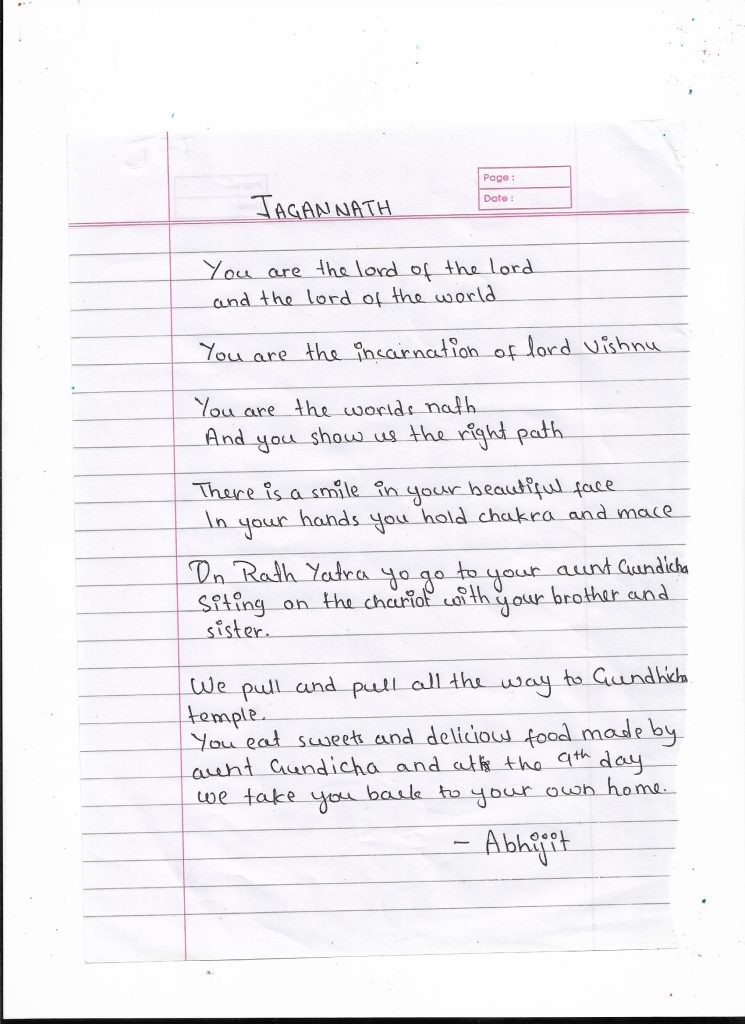 Page :
Date :
JAGANNATH
You are the lord of the lord
and the lord of the world
You are the incarnation of lord Vishnu
You are the worlds nath
And you show us the right path
There is a smile in your beautiful face
In your hands you hold chakra and mace
On Rath Yatra yo go to your aunt Gundicha
Siting on the chariot with your brother and
sister.
We pull and pull all the way to Gundhicha
temple.
You eat sweets and delicious food made by
aunt Gundicha and the 9th day
we take you back to your own home.
- Abhijit